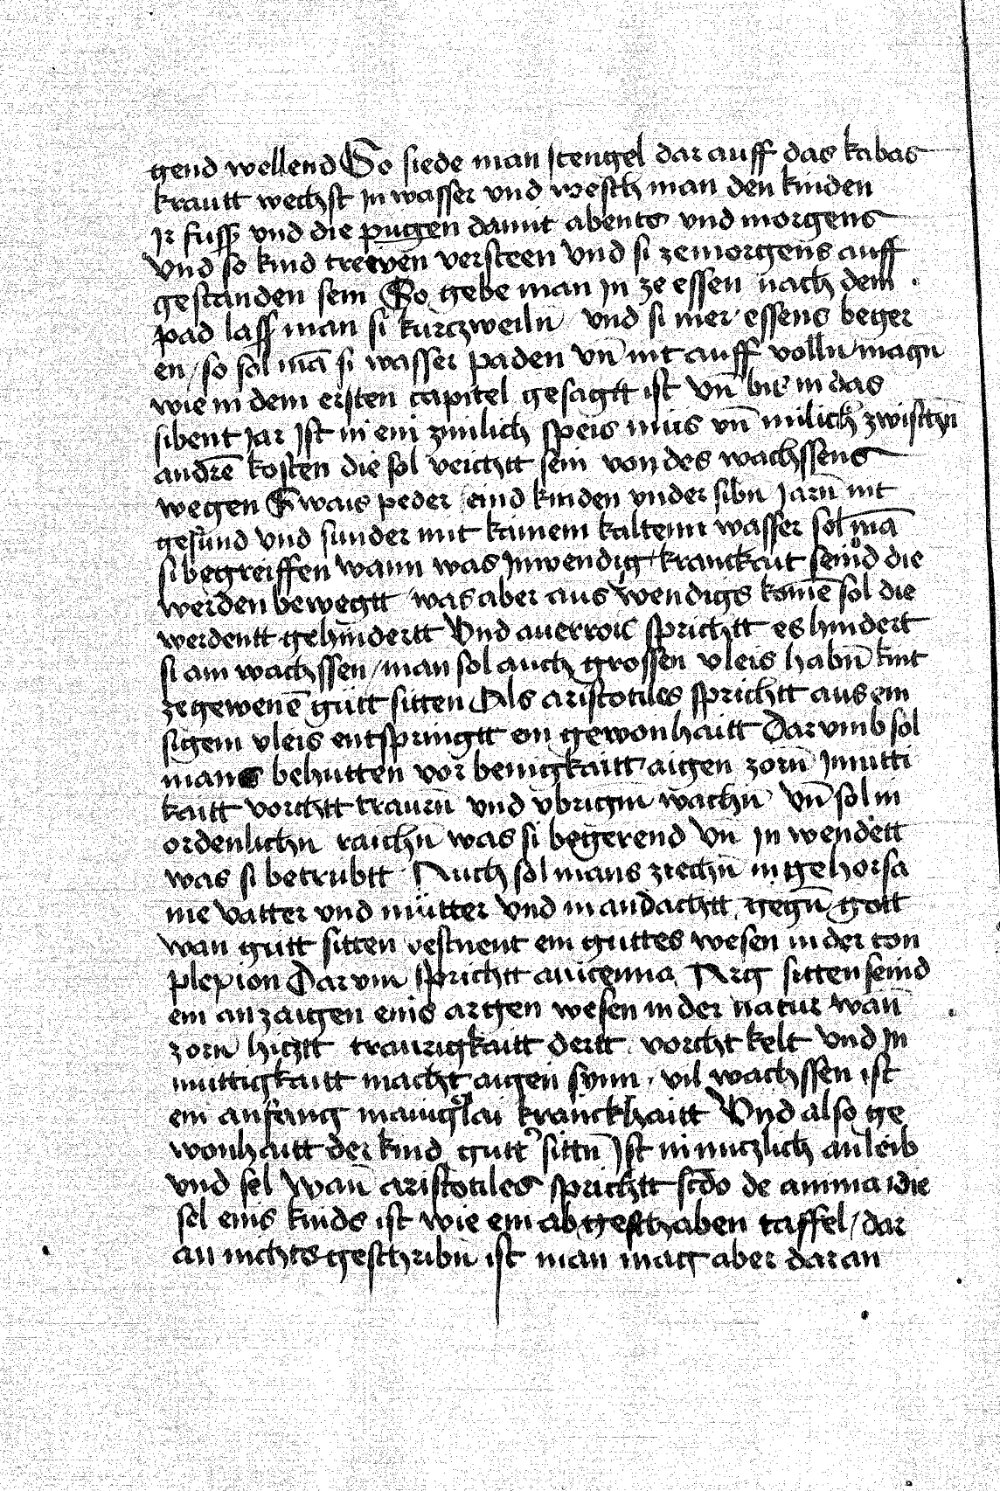 gend wellend So siede man stengel dar auff das kabas
krautt wechst In wasser vnd wesch man den kinden
Ir fuss vnd die pugen damit abents vnd morgens
vnd so kind treeven versteen vnd si ze morgens auff
gestanden sein So gebe man In ze essen nach dem
pad lass man si kurczweiln / vnd si mer essens beger
en / so sol mā si wasser paden vn̄ nit auff volln magn
wie in dem ersten capitel gesagtt ist vn̄ bis in das
sibent Jar Ist in ein zimlich speis mus vn̄ milich zwischn̄
andrē kosten die sol veichtt sein von des wachssens
wegen Swais peder seind kinden vnder sibn Jarn̄ nit
gesund vnd sunder mit kainem kaltenn wasser sol mā
si begreiffen wann was Inwendig kranckait seind die
werden bewegtt was aber aus wendigs komē sol die
werdentt gehindertt Vnd auerrois sprichtt es hindert
si am wachssen / man sol auch grossen vleis habn̄ kint
ze gewenē gutt sitten Als aristotiles sprichtt aus em
sigem vleis entspringtt ein gewonhaitt Dar vmb sol
mans behutten vor benigkaitt aigen zorn̄ Inmutti
kaitt vorchtt traurn̄ vnd vbrigm wachn̄ vn̄ sol in
ordenlichn raichn̄ was si begerend vn̄ In wendett
was si betrubtt Auch sol mans ziechn̄ in gehorsa
me vatter vnd mutter vnd in andachtt gegn̄ gott
wan gutt sitten vestnent ein guttes wesen in der con
plexion Dar vm sprichtt auicenna Arg sitten seind
ein anzaigen einis argen wesen in der natur wan̄
zorn hicztt traurigkaitt dertt vorcht kelt vnd In
muttigkaitt macht aigen synn vil wachssen ist
ein anfang manigslai kranckhaitt Vnd also ge
wonhaitt der kind gutt' sittn̄ Ist in nuczlich an leib
vnd sel Wan̄ aristotiles sprichtt scd̄o de anima die
sel eins kinds ist wie ein abgeschaben taffel / dar
an nichts geschribn̄ ist man mag aber daran